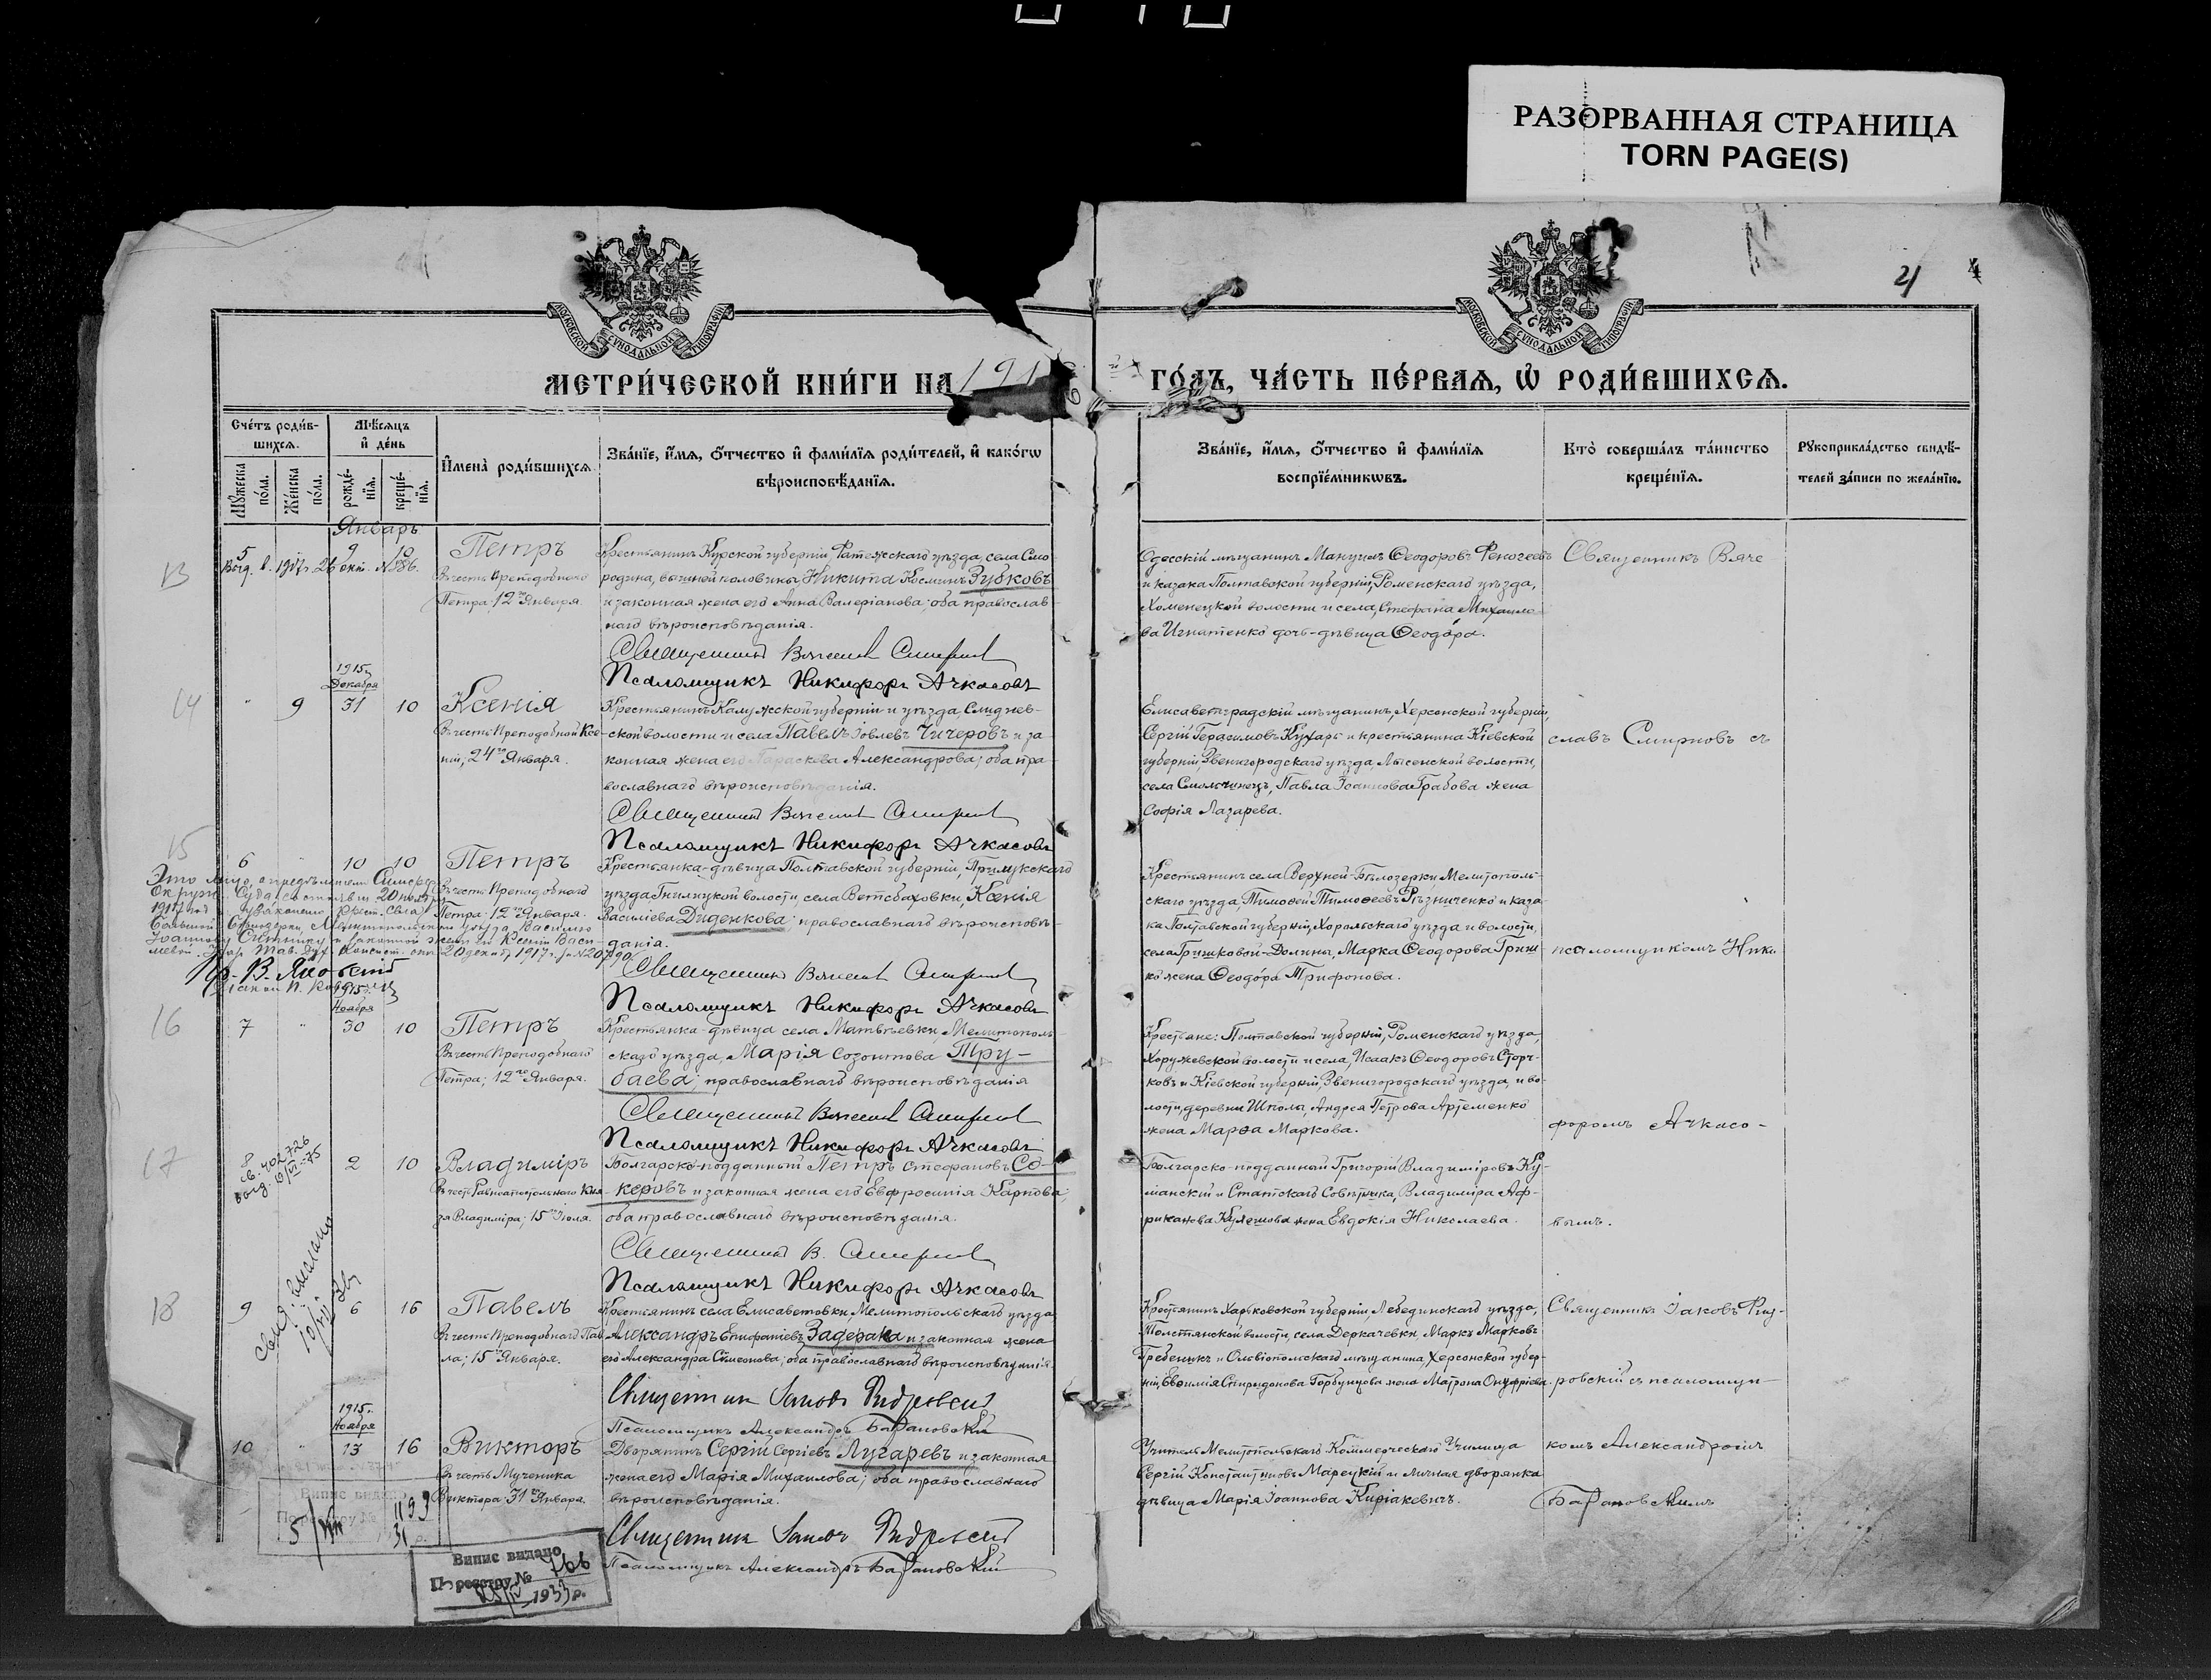 РАЗОРВАННАЯ СТРАНИЦА
TORN PAGE(S)
21
МОСКОВСКОЙ СѴНОДАЛЬНОЙ ТИПОГРАФІИ
МОСКОВСКОЙ СѴНОДАЛЬНОЙ ТИПОГРАФІИ
МЕТРИ́ЧЕСКОЙ КНИ́ГИ НА 191
ГО́ДЪ, ЧА́СТЬ ПЕ́РВАѦ, Ѡ҆ РОДИ́ВШИХСѦ.
Сче́тъ роди́в-
шихсѧ.
Мꙋжеска по́ла.
Же́нска по́ла.
Мѣ́сѧцъ и҆ де́нь
рожде́-
нїѧ.
креще́-
нїѧ.
И҆мена̀ роди́вшихсѧ.
Зва́нїе, и҆́мѧ, ѻ҆́тчество и҆ фами́лїѧ роди́телей, и҆ како́гѡ
вѣроисповѣ́данїѧ.
Зва́нїе, и҆́мѧ, ѻ҆́тчество и҆ фами́лїѧ
воспрїе́мникѡвъ.
Кто̀ соверша́лъ та́инство
креще́нїѧ.
Рꙋкоприкла́дство свидѣ́-
телей за́писи по жела́нїю.
Январь
13
5
9
10
1917 г. 26 окт.
Петръ
Въ честь Преподобнаго
Петра; 12го Января.
Крестьянинъ Курской губерніи, Фатежскаго уѣзда, села Смо-
родина, Никита Космин Зубковъ
и законная жена его Анна Валеріанова; оба православ-
наго вѣроисповѣданія.
Священникъ Вячеслав Смирнов
Псаломщикъ Никифоръ Ачкасовъ
Одесскій мѣщанинъ Мануилъ Ѳеодоровъ
и казака Полтавской губерніи, Роменскаго уѣзда,
волости и села, Стефана Михаило-
ва Игнатенко дочь-дѣвица Ѳеодора.
Священникъ Вяче
14
"
9
1915 г.
Декабря
31
10
Ксенія
Въ честь Преподобной Ксе-
ніи; 24го Января.
Крестьянинъ Калужской губерніи и уѣзда,
ской волости и села Павелъ Іовлевъ Чичеровъ и за-
конная жена его Параскева Александрова; оба пра-
вославнаго вѣроисповѣданія.
Священникъ Вячеслав Смирнов
Псаломщикъ Никифоръ Ачкасовъ
Елисаветградскій мѣщанинъ, Херсонской губерніи,
Сергій Герасимовъ Кухарь и крестьянина Кіевской
губерніи, Звенигородскаго уѣзда, Лысенской волости,
села Павла Іоаннова Грабова жена
Софія Лазарева.
славъ Смирновъ съ
15
6
"
10
10
Петръ
Въ честь Преподобнаго
Петра; 12го Января.
Крестьянка-дѣвица Полтавской губерніи, Прилукскаго
уѣзда, волости, села Ксенія
Василіева Диденкова; православнаго вѣроисповѣ-
данія.
Священникъ Вячеслав Смирнов
Псаломщикъ Никифоръ Ачкасовъ
Крестьянинъ села Верхней-Бѣлозерки, Мелитополь-
скаго уѣзда, Тимоѳей Тимоѳеевъ Рѣзниченко и каза-
ка Полтавской губерніи, Хорольскаго уѣзда и волости,
села Гришковой-Долины, Марка Ѳеодорова Гриш-
ко жена Ѳеодора Трифонова.
псаломщикомъ Ники
16
7
"
1915 г.
Ноября
30
10
Петръ
Въ честь Преподобнаго
Петра; 12го Января.
Крестьянка-дѣвица села Матвѣевки, Мелитополь-
скаго уѣзда, Марія Созонтова Тру-
баева; православнаго вѣроисповѣданія
Священникъ Вячеслав Смирнов
Псаломщикъ Никифоръ Ачкасовъ
Крестьяне: Полтавской губерніи, Роменскаго уѣзда,
Хоружевской волости и села, Исаакъ Ѳеодоровъ
и Кіевской губерніи, Звенигородскаго уѣзда, и во-
лости, деревни Шполы, Андрея Петрова Артеменко
жена Марѳа Маркова.
форомъ Ачкасо-
17
8
2
10
Владиміръ
Въ честь Равноапостольнаго Кня-
зя Владиміра; 15го Іюля.
Болгарско-подданный Петръ Стефановъ Со-
керовъ и законная жена его Евфросинія Карпова;
оба православнаго вѣроисповѣданія.
Священникъ В. Смирнов
Псаломщикъ Никифоръ Ачкасовъ
Болгарско-подданный Григорій Владиміровъ Ку-
манскій и Статскаго Совѣтника, Владиміра Аф-
риканова Кулешова жена Евдокія Николаева.
вымъ.
18
9
"
6
16
Павелъ
Въ честь Преподобнаго Пав-
ла; 15го Января.
Крестьянинъ села Елисаветовки, Мелитопольскаго уѣзда
Александръ Епифаніевъ Задерака и законная жена
его Александра Симеонова; оба православнаго вѣроисповѣданія.
Псаломщикъ Александръ Барановскій
Крестьянинъ Харьковской губерніи, Лебединскаго уѣзда,
Толстянской волости, села Деркачевки, Маркъ Марковъ
Гребеникъ и Ольвіопольскаго мѣщанина, Херсонской губер-
ніи, Евѳимія Спиридонова Горбунцова жена Матрона Онуфріева.
Священникъ Іаковъ
ровскій съ псаломщи-
10
"
1915 г.
Ноября
13
16
Викторъ
Въ честь Мученика
Виктора; 31го Января.
Дворянинъ Сергій Сергіевъ Лугаревъ и законная
жена его Марія Михаилова; оба православнаго
вѣроисповѣданія.
Псаломщикъ Александръ Барановскій
Учитель Мелитопольскаго Коммерческаго Училища
Сергій Константиновъ Марецкій и личная дворянка
дѣвица Марія Іоаннова Киріакевичъ.
комъ Александромъ
Барановскимъ
Випис видано
По реєстру №
1193
Випис видано
По реєстру № 766
1933 р.